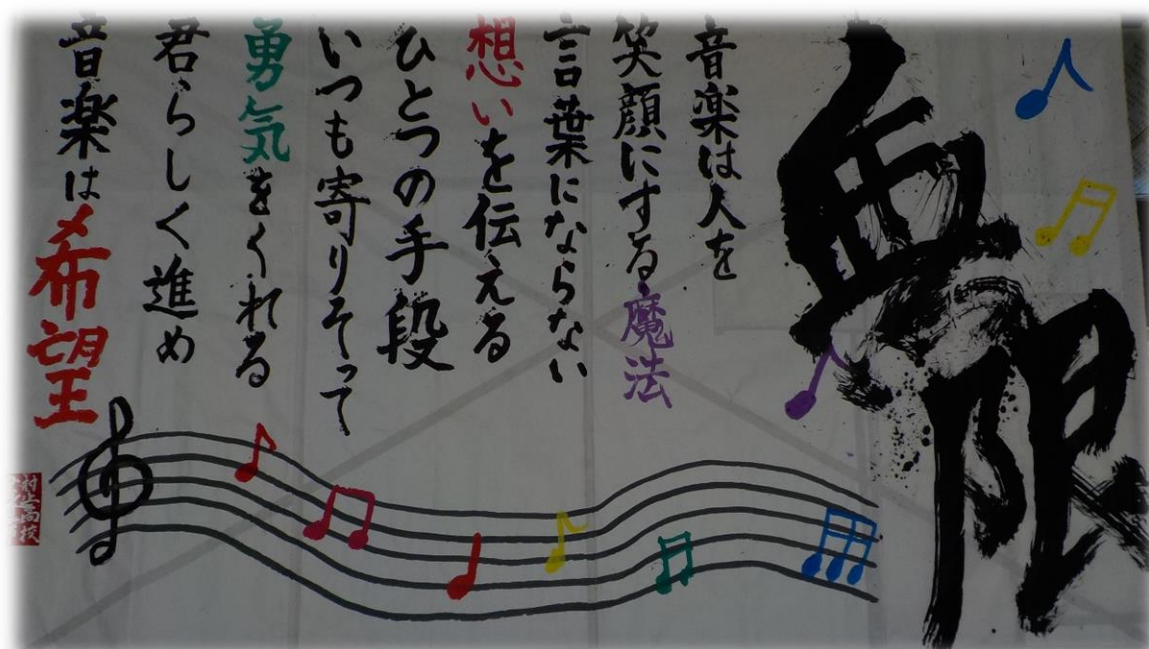 無限
音楽は人を
笑顔にする魔法
言葉にならない
想いを伝える
ひとつの手段
いつも寄りそって
勇気をくれる
君らしく進め
音楽は希望
村上高校